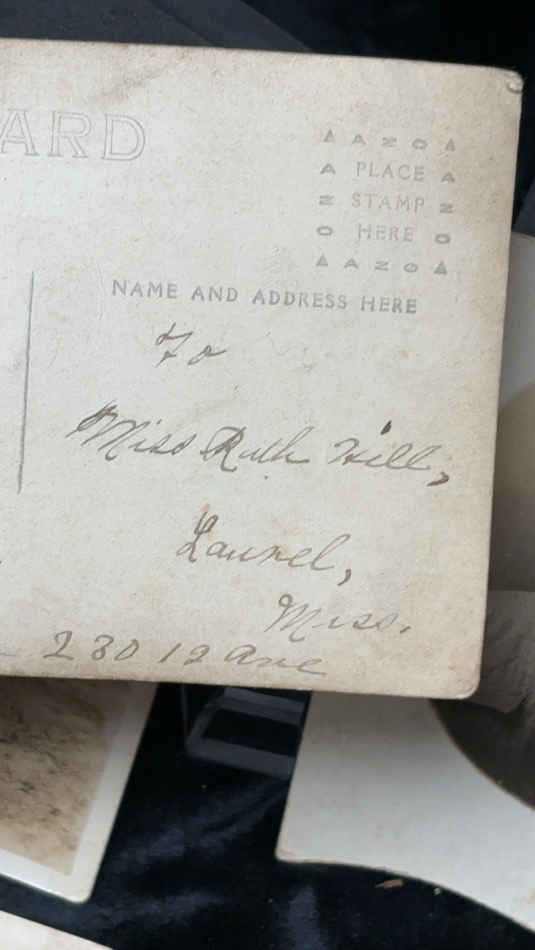 ARD
▲ AZO ▲
A PLACE A
Z STAMP Z
O HERE O
▲ AZO ▲
NAME AND ADDRESS HERE
To
Miss Ruth Hill,
Laurel,
Miss.
230 12 Ave